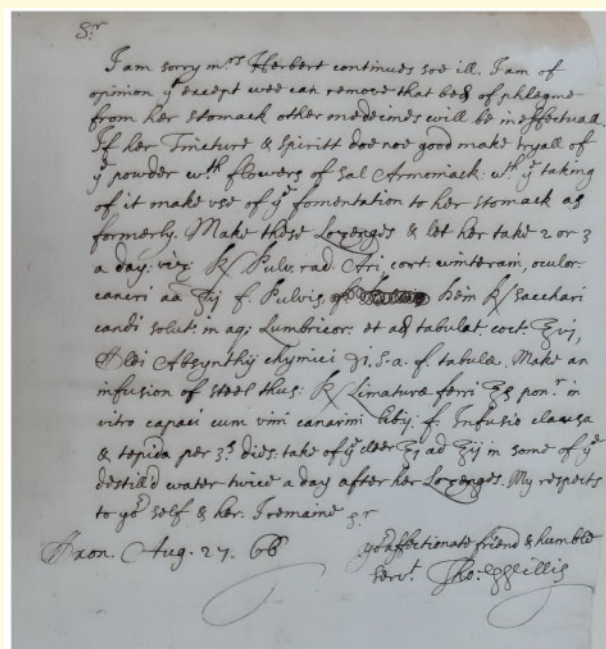 Sr
I am sorry mrs Herbert continues soe ill. I am of
opinion yt except wee can remove that bed of phlegme
from her stomack other medecines will be ineffectuall.
If her Tincture & Spiritt doe noe good make tryall of
ye powder wth flowers of Sal Armoniack: wth ye taking
of it make vse of ye fomentation to her stomack as
formerly. Make these Lozenges & let her take 2 or 3
a day: viz: ℞ Pulv. rad. Ari, cort. winterani, oculor.
cancri aa ʒij f. Pulvis, ℞ sacchari
candi solut. in aq; Lumbricor. et ad tabulat. coct. ℥vj,
Olei Absynthij chymici ℈i. S. a. f. tabulæ. Make an
infusion of steel thus: ℞ Limaturæ ferri ponr in
vitro capaci cum vini canarini: f. Infusio clausa
& tepida per 3s dies: take of ye cleer ℥j ad ℥ij in some of ye
destill'd water twice a day after her Lozenges. My respects
to yor self & her. I remaine Sr
Oxon. Aug. 27. 66
yor affectionate friend & humble
servt. Tho: Willis